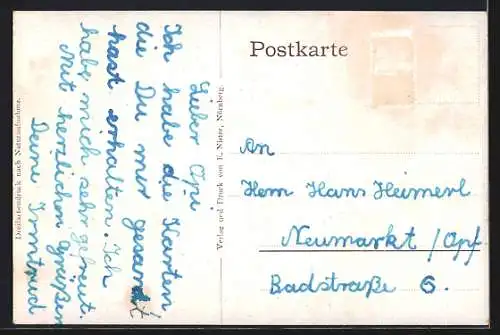 Postkarte
Lieber Opi
Ich habe die Karten
die Du mir gesandt
hast erhalten. Ich
habe mich sehr gefreut.
Mit herzlichen grüßen
Deine Irmtrud
An
Herrn Hans Heimerl
Neumarkt/Opf
Badstraße 6.
Verlag und Druck von E. Nister, Nürnberg.
Dreifarbendruck nach Naturaufnahme.